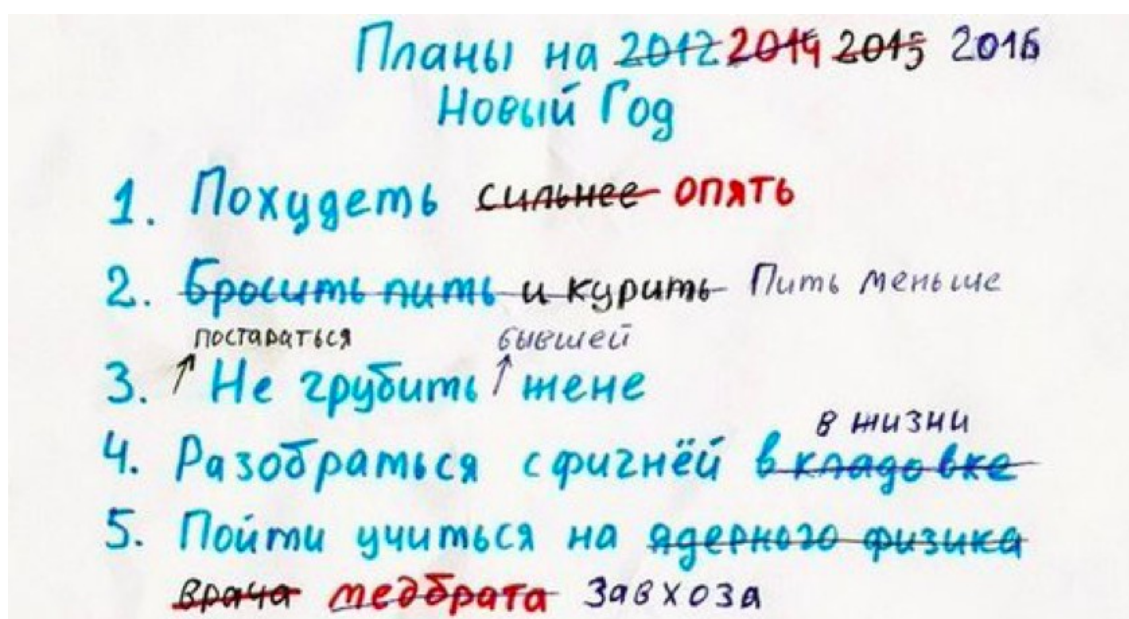 Планы на 2012 2014 2015 2016
Новый Год
1. Похудеть сильнее опять
2. Бросить пить и курить Пить меньше
постараться бывшей
3. Не грубить жене
в жизни
4. Разобраться с фигнёй в кладовке
5. Пойти учиться на ядерного физика
врача медбрата завхоза